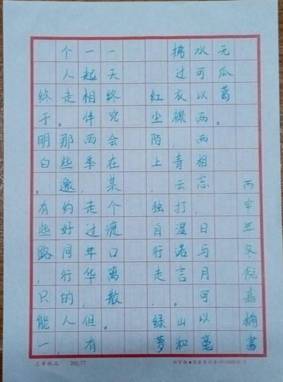 终于。明白有些路,只能一
个人走。那些邀约好同行的人,
一起相伴雨季,走过年华,但有
一天终究会在某个渡口离散。
红尘陌上,独自行走,绿萝
拂过衣襟,青云打湿诺言。山和
水可以两相忘,日与月可以毫
无瓜葛